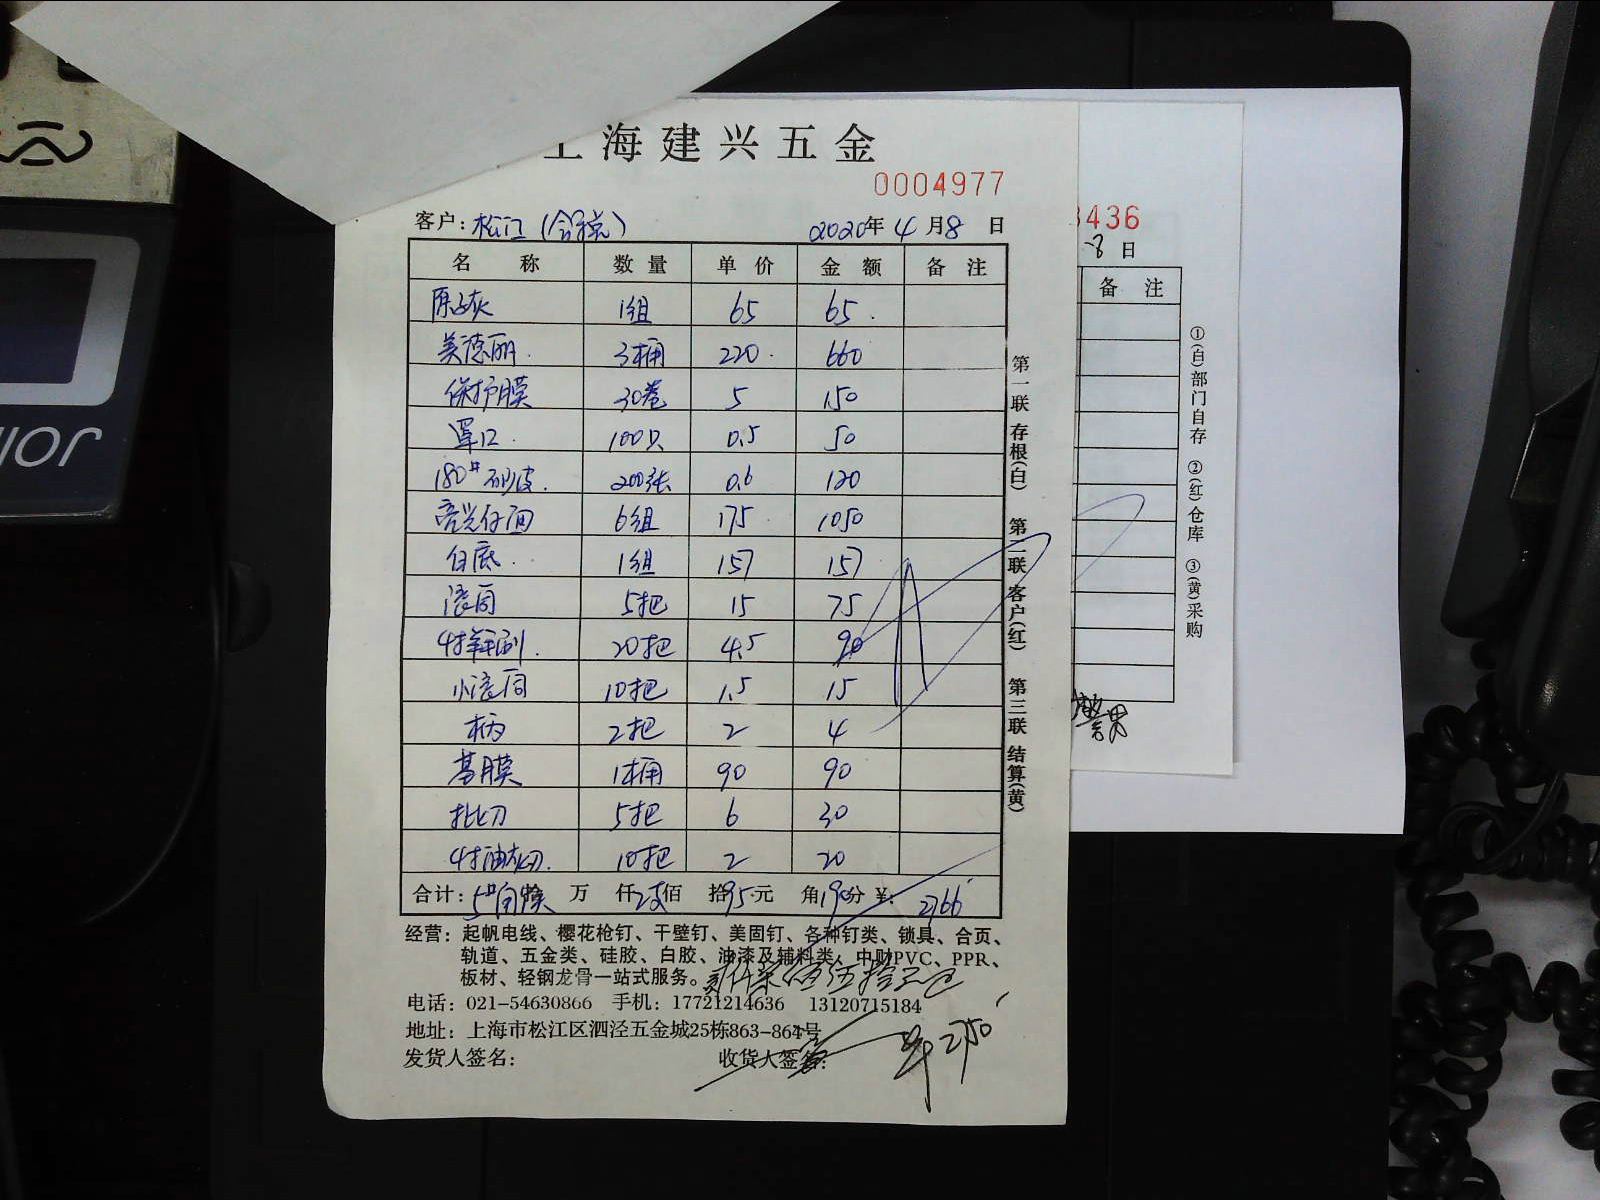 上海建兴五金
0004977
客户：松江（含税） 2020年4月8日
名 称 数量 单价 金额 备注
原子灰 1组 65 65
美德丽 3桶 220 660
保护膜 30卷 5 150
罩口 100只 0.5 50
180#砂皮 200张 0.6 120
6组 175 1050
白底 1组 157 157
滚筒 5把 15 75
4寸羊毛刷 20把 4.5 90
小滚筒 10把 1.5 15
柄 2把 2 4
基膜 1桶 90 90
批刀 5把 6 30
4寸油灰刀 10把 2 20
合计： 拾 万 仟 佰 拾 元 角 分 ¥: 2766
5# 2支 95 190
第一联 存根(白) 第二联 客户(红) 第三联 结算(黄)
经营：起帆电线、樱花枪钉、干壁钉、美固钉、各种钉类、锁具、合页、
轨道、五金类、硅胶、白胶、油漆及辅料类、中财PVC、PPR、
板材、轻钢龙骨一站式服务。
贰仟柒佰伍拾元
电话：021-54630866 手机：17721214636 13120715184
地址：上海市松江区泗泾五金城25栋863-864号
发货人签名： 收货人签名：
2750
3436
8日
备注
①(白)部门自存 ②(红)仓库 ③(黄)采购